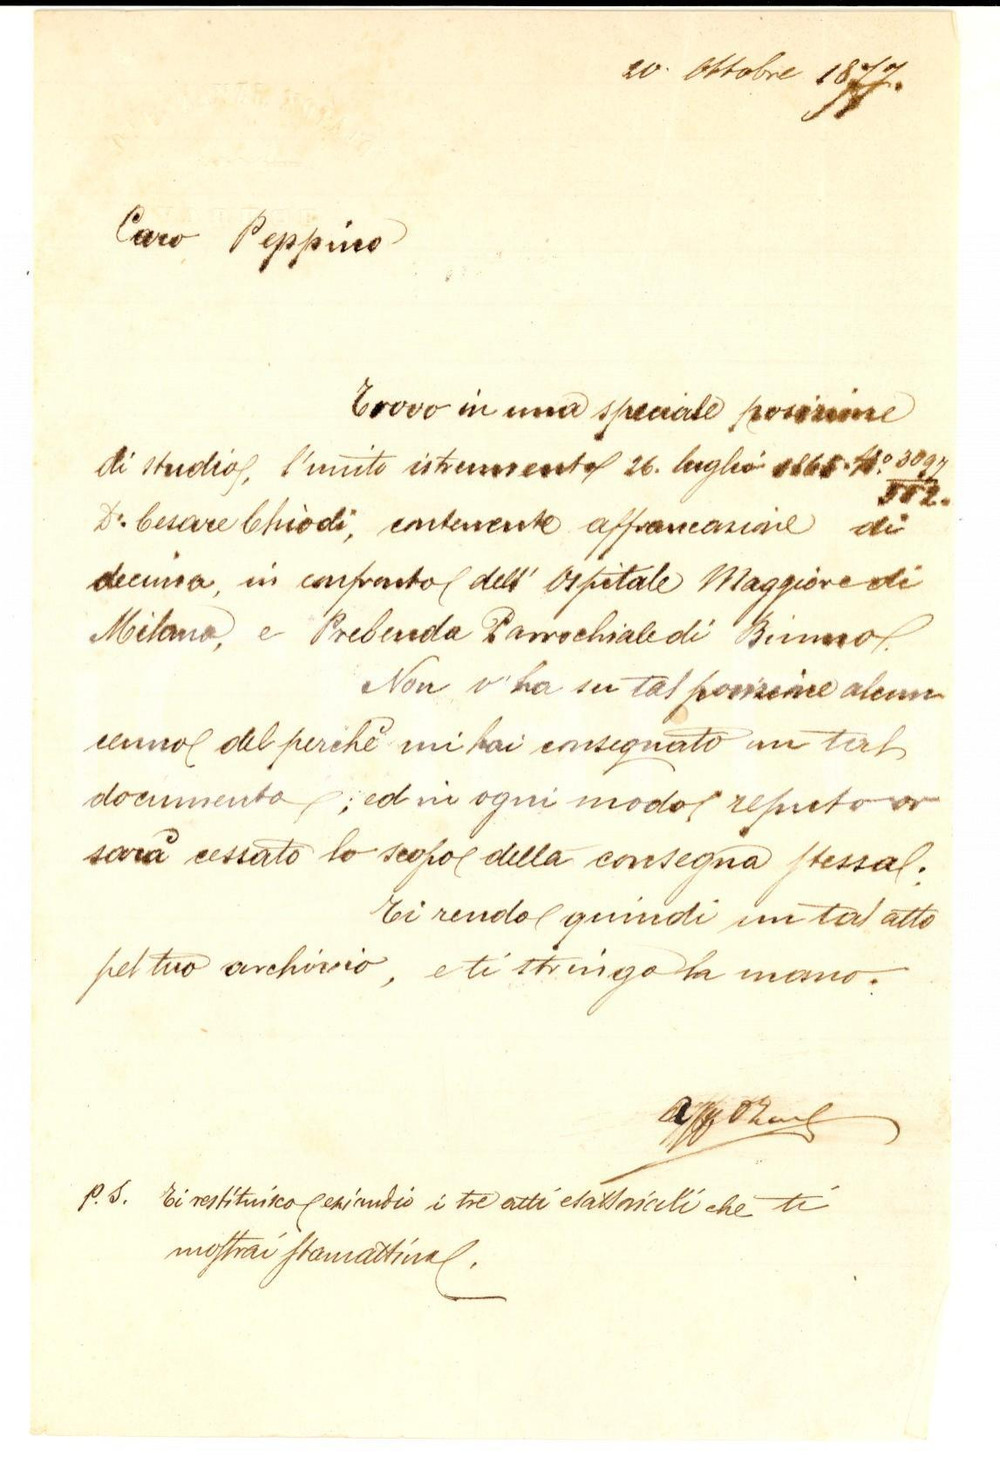 20. Ottobre 1877.
Caro Peppino
Trovo in una speciale posizione
di studio, l'unito istrumento 26. luglio 1865. N.° 3097
552.
Dr. Cesare Chiodi, contenente affrancazione di
decima, in confronto dell' Ospitale Maggiore di
Milano, e Prebenda Parrochiale di Binno.
Non v'ha su tal posizione alcun
cenno del perchè mi hai consegnato un tal
documento; ed in ogni modo reputo or
sarà cessato lo scopo della consegna stessa.
Ti rendo quindi un tal atto
pel tuo archivio, e ti stringo la mano.
P.S. Ti restituisco eziandio i tre atti che ti
mostrai stamattina.